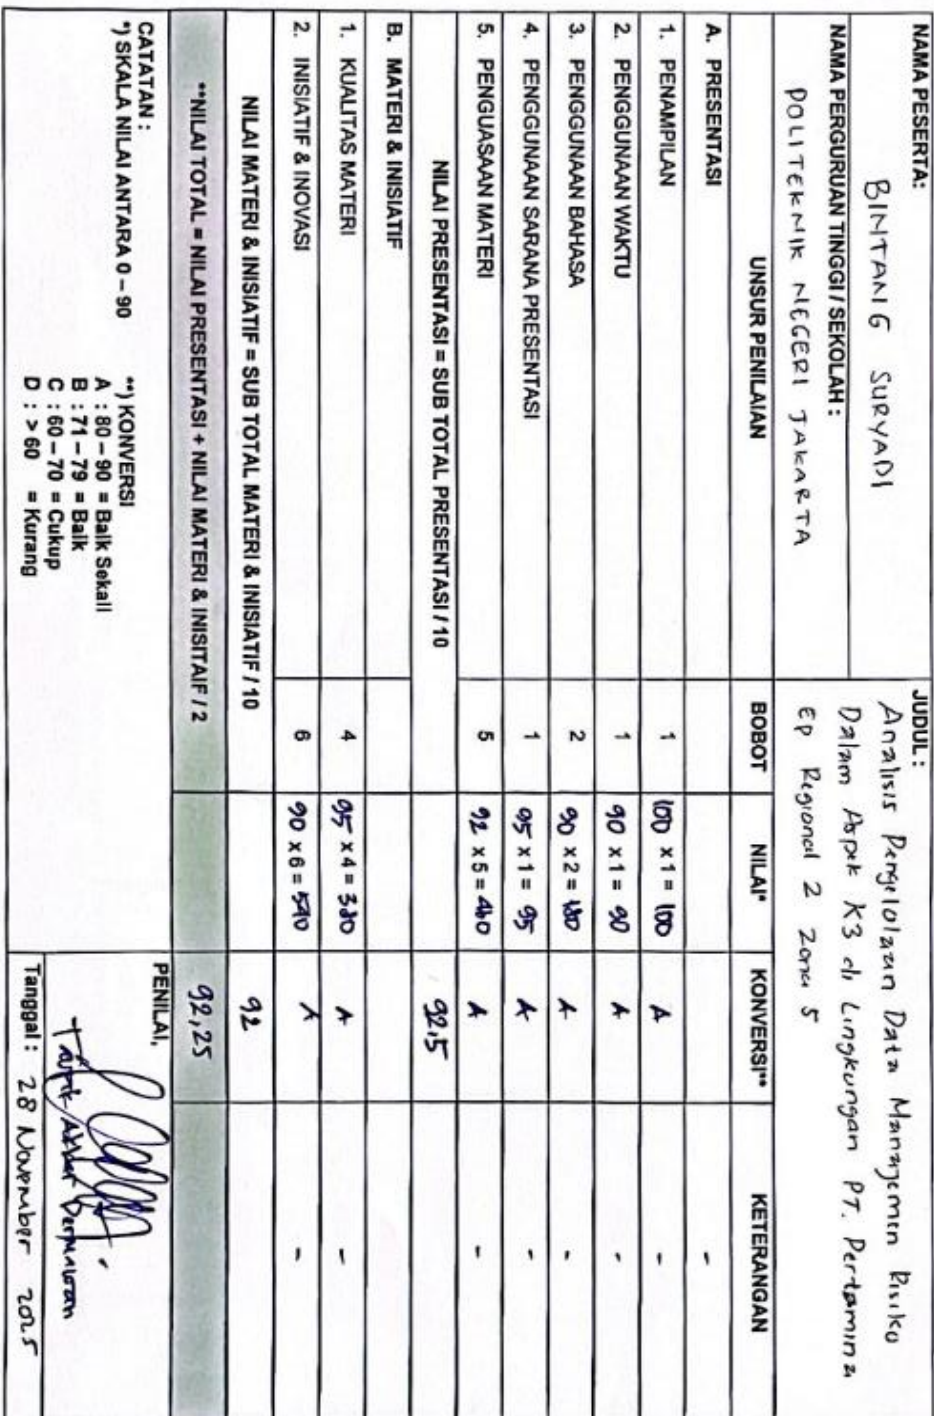 NAMA PESERTA:
BINTANG SURYADI
NAMA PERGURUAN TINGGI / SEKOLAH :
POLITEKNIK NEGERI JAKARTA
JUDUL :
Analisis Pengelolaan Data Managemen Risiko
Dalam Aspek K3 di Lingkungan PT. Pertamina
EP Regional 2 Zona 5
UNSUR PENILAIAN BOBOT NILAI* KONVERSI** KETERANGAN
A. PRESENTASI -
1. PENAMPILAN 1 100 x 1 = 100 A -
2. PENGGUNAAN WAKTU 1 90 x 1 = 90 A -
3. PENGGUNAAN BAHASA 2 90 x 2 = 180 A -
4. PENGGUNAAN SARANA PRESENTASI 1 95 x 1 = 95 A -
5. PENGUASAAN MATERI 5 92 x 5 = 460 A -
NILAI PRESENTASI = SUB TOTAL PRESENTASI / 10 92,5
B. MATERI & INISIATIF
1. KUALITAS MATERI 4 95 x 4 = 380 A -
2. INISIATIF & INOVASI 6 90 x 6 = 540 A -
NILAI MATERI & INISIATIF = SUB TOTAL MATERI & INISIATIF / 10 92
**NILAI TOTAL = NILAI PRESENTASI + NILAI MATERI & INISITAIF / 2 92,25
CATATAN :
*) SKALA NILAI ANTARA 0 – 90
**) KONVERSI
A : 80 – 90 = Baik Sekali
B : 71 – 79 = Baik
C : 60 – 70 = Cukup
D : > 60 = Kurang
PENILAI,
Taufik Akbar
Tanggal : 28 November 2025